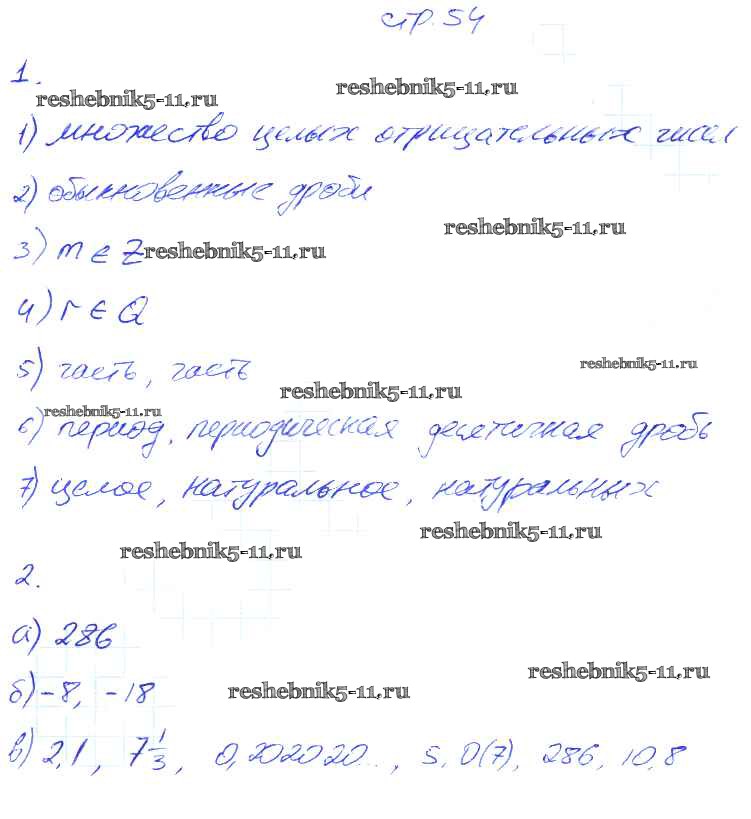 стр. 54
1.
reshebnik5-11.ru reshebnik5-11.ru
1) множество целых отрицательных чисел
2) обыкновенные дроби
reshebnik5-11.ru
3) m ∈ Z reshebnik5-11.ru
4) r ∈ Q
5) часть, часть
reshebnik5-11.ru
reshebnik5-11.ru
reshebnik5-11.ru
6) период, периодическая десятичная дробь
7) целое, натуральное, натуральных
reshebnik5-11.ru
reshebnik5-11.ru
2.
а) 286
reshebnik5-11.ru
б) -8, -18 reshebnik5-11.ru
в) 2,1, 7 1/3, 0,202020..., 5,0(7), 286, 10,8